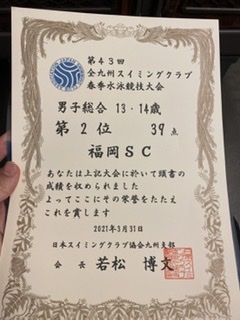 第43回
全九州スイミングクラブ
春季水泳競技大会
男子総合 13・14歳
第2位 39点
福岡SC
あなたは上記大会に於いて頭書の
成績を収められました
よってここにその栄誉をたたえ
これを賞します
2021年3月31日
日本スイミングクラブ協会九州支部
会長 若松 博文